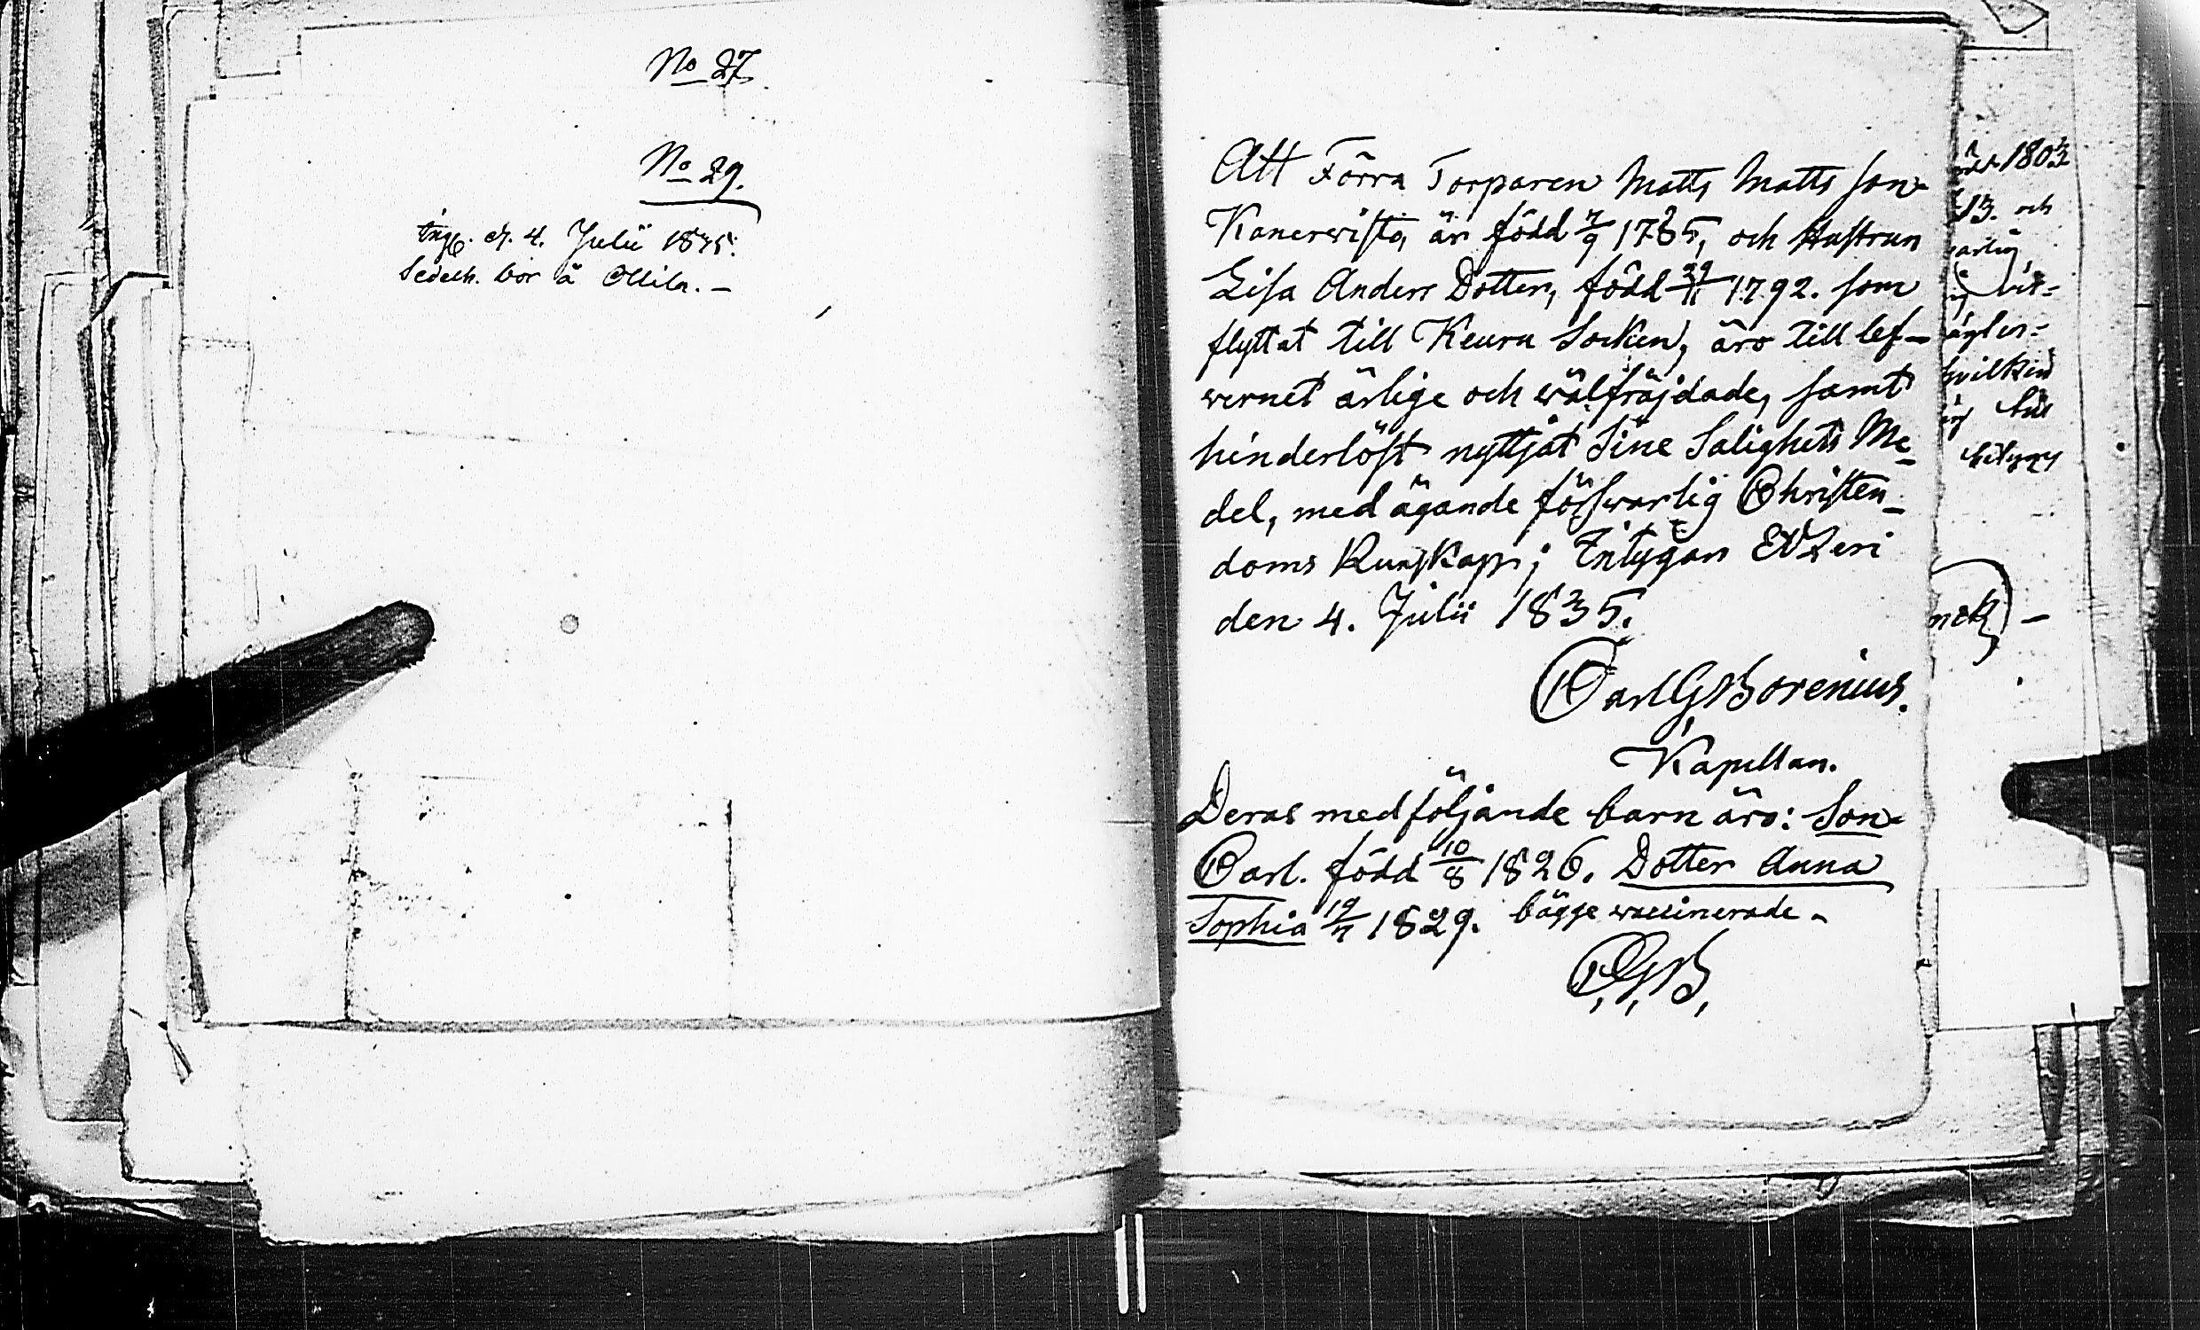 No 27
No 29.
d. 4. Julii 1835.
bor å Ollila. –
Att Förra Torparen Matts Matts son
Kanervisto, är född 7/9 1785, och Hustrun
Lisa Anders Dotter, född 29/11 1792. som
flyttat till Keuru Socken, äro till lef–
wernet ärlige och wälfräjdade, samt
hinderlöst nyttjat Sine Salighets Me–
del, med ägande förswarlig Christen–
doms Kunskap; Intygar Etzeri
den 4. Julii 1835.
Carl G Borenius.
Kapellan.
Deras medföljande barn äro: Son
Carl. född 10/8 1826. Dotter Anna
Sophia 19/7 1829. bägge waccinerade –
C. G. B.
1803
13. och
hvilken
till